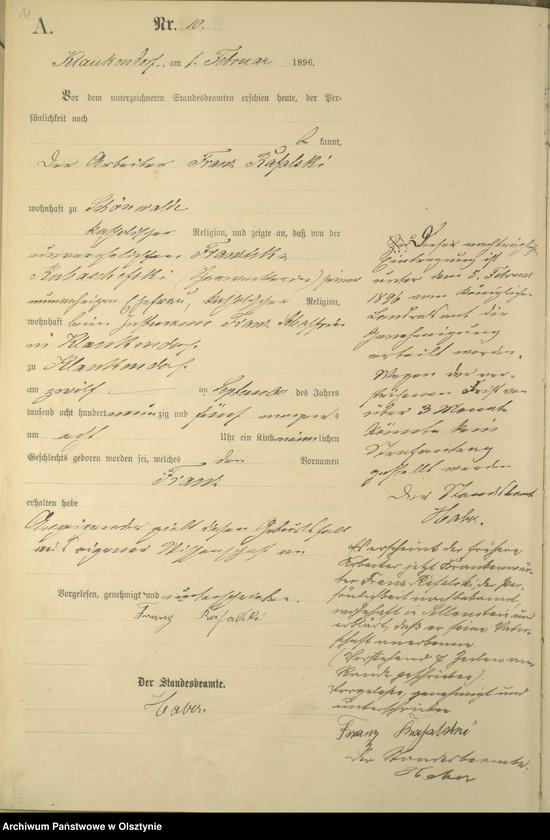 A.
Nr. 10.
Klaukendorf, am 1. Februar 1896.
Vor dem unterzeichneten Standesbeamten erschien heute, der Per-
sönlichkeit nach
kannt,
Der Arbeiter Franz Rafalski
wohnhaft zu Schönwalde
katholischer Religion, und zeigte an, daß von der
unverehelichten Franziska
seiner
nunmehrigen Ehefrau, katholischer Religion,
wohnhaft beim Franz
in Klaukendorf
zu Klaukendorf
am zwölf ten September des Jahres
tausend acht hundert neunzig und fünf
um acht Uhr ein Kind männlichen
Geschlechts geboren worden sei, welches den Vornamen
Franz
erhalten habe
Anzeigender zeigt diesen Geburtsfall
aus eigener Wissenschaft an
Vorgelesen, genehmigt und unterschrieben.
Franz Rafalski
Der Standesbeamte.
Haber.
Dieser nachträgliche
Eintragung ist
unter dem 5. Februar
1896 vom Königlichen
Landratsamt die
Genehmigung
erteilt worden.
Wegen der ver-
strichenen Frist von
über 3 Monate
könnte kein
Strafantrag
gestellt werden
Der Standesbeamte
Haber.
Es erscheint der frühere
Arbeiter jetzt Krankenwär-
ter Franz Rafalski, der Per-
sönlichkeit nach bekannt,
wohnhaft in Allenstein und
erklärt, daß er seine Vater-
schaft anerkenne.
(Vorstehend 7 Zeilen am
Rande geschrieben)
Vorgelesen, genehmigt und
unterschrieben
Franz Rafalski
Der Standesbeamte.
Haber
Archiwum Państwowe w Olsztynie